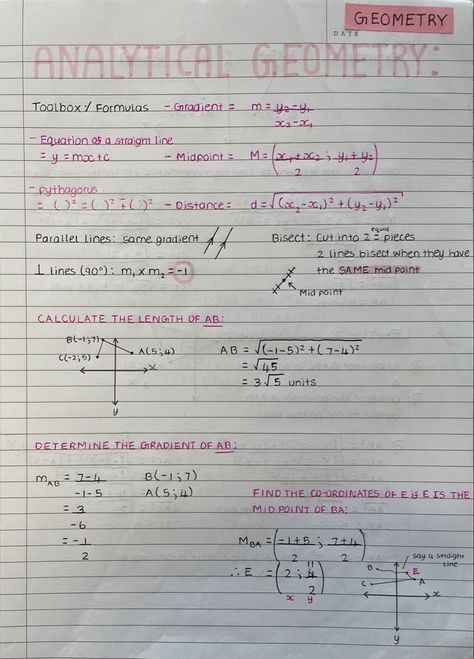 GEOMETRY
DATE
ANALYTICAL GEOMETRY:
Toolbox / Formulas - Gradient = m = y₂ - y₁
x₂ - x₁
- Equation of a straight line
= y = mx + c - Midpoint = M = (x₁ + x₂ ; y₁ + y₂)
2 2
- pythagorus
= ( )² = ( )² + ( )² - Distance = d = √(x₂ - x₁)² + (y₂ - y₁)²
Parallel lines: same gradient
Bisect: Cut into 2 equal pieces
2 lines bisect when they have
the SAME mid point
Mid point
⊥ lines (90°): m₁ x m₂ = -1
CALCULATE THE LENGTH OF AB:
B(-1;7)
A(5;4)
C(-2;5)
x
y
AB = √(-1-5)² + (7-4)²
= √45
= 3√5 units
DETERMINE THE GRADIENT OF AB:
mAB = 7-4 B(-1;7)
-1-5 A(5;4)
= 3
-6
= -1
2
FIND THE CO-ORDINATES OF E IF E IS THE
MID POINT OF BA:
MBA = (-1+5 ; 7+4)
2 2
∴ E = (2 ; 11)
2
x y
say a straight
line
B
E
A
C
x
y